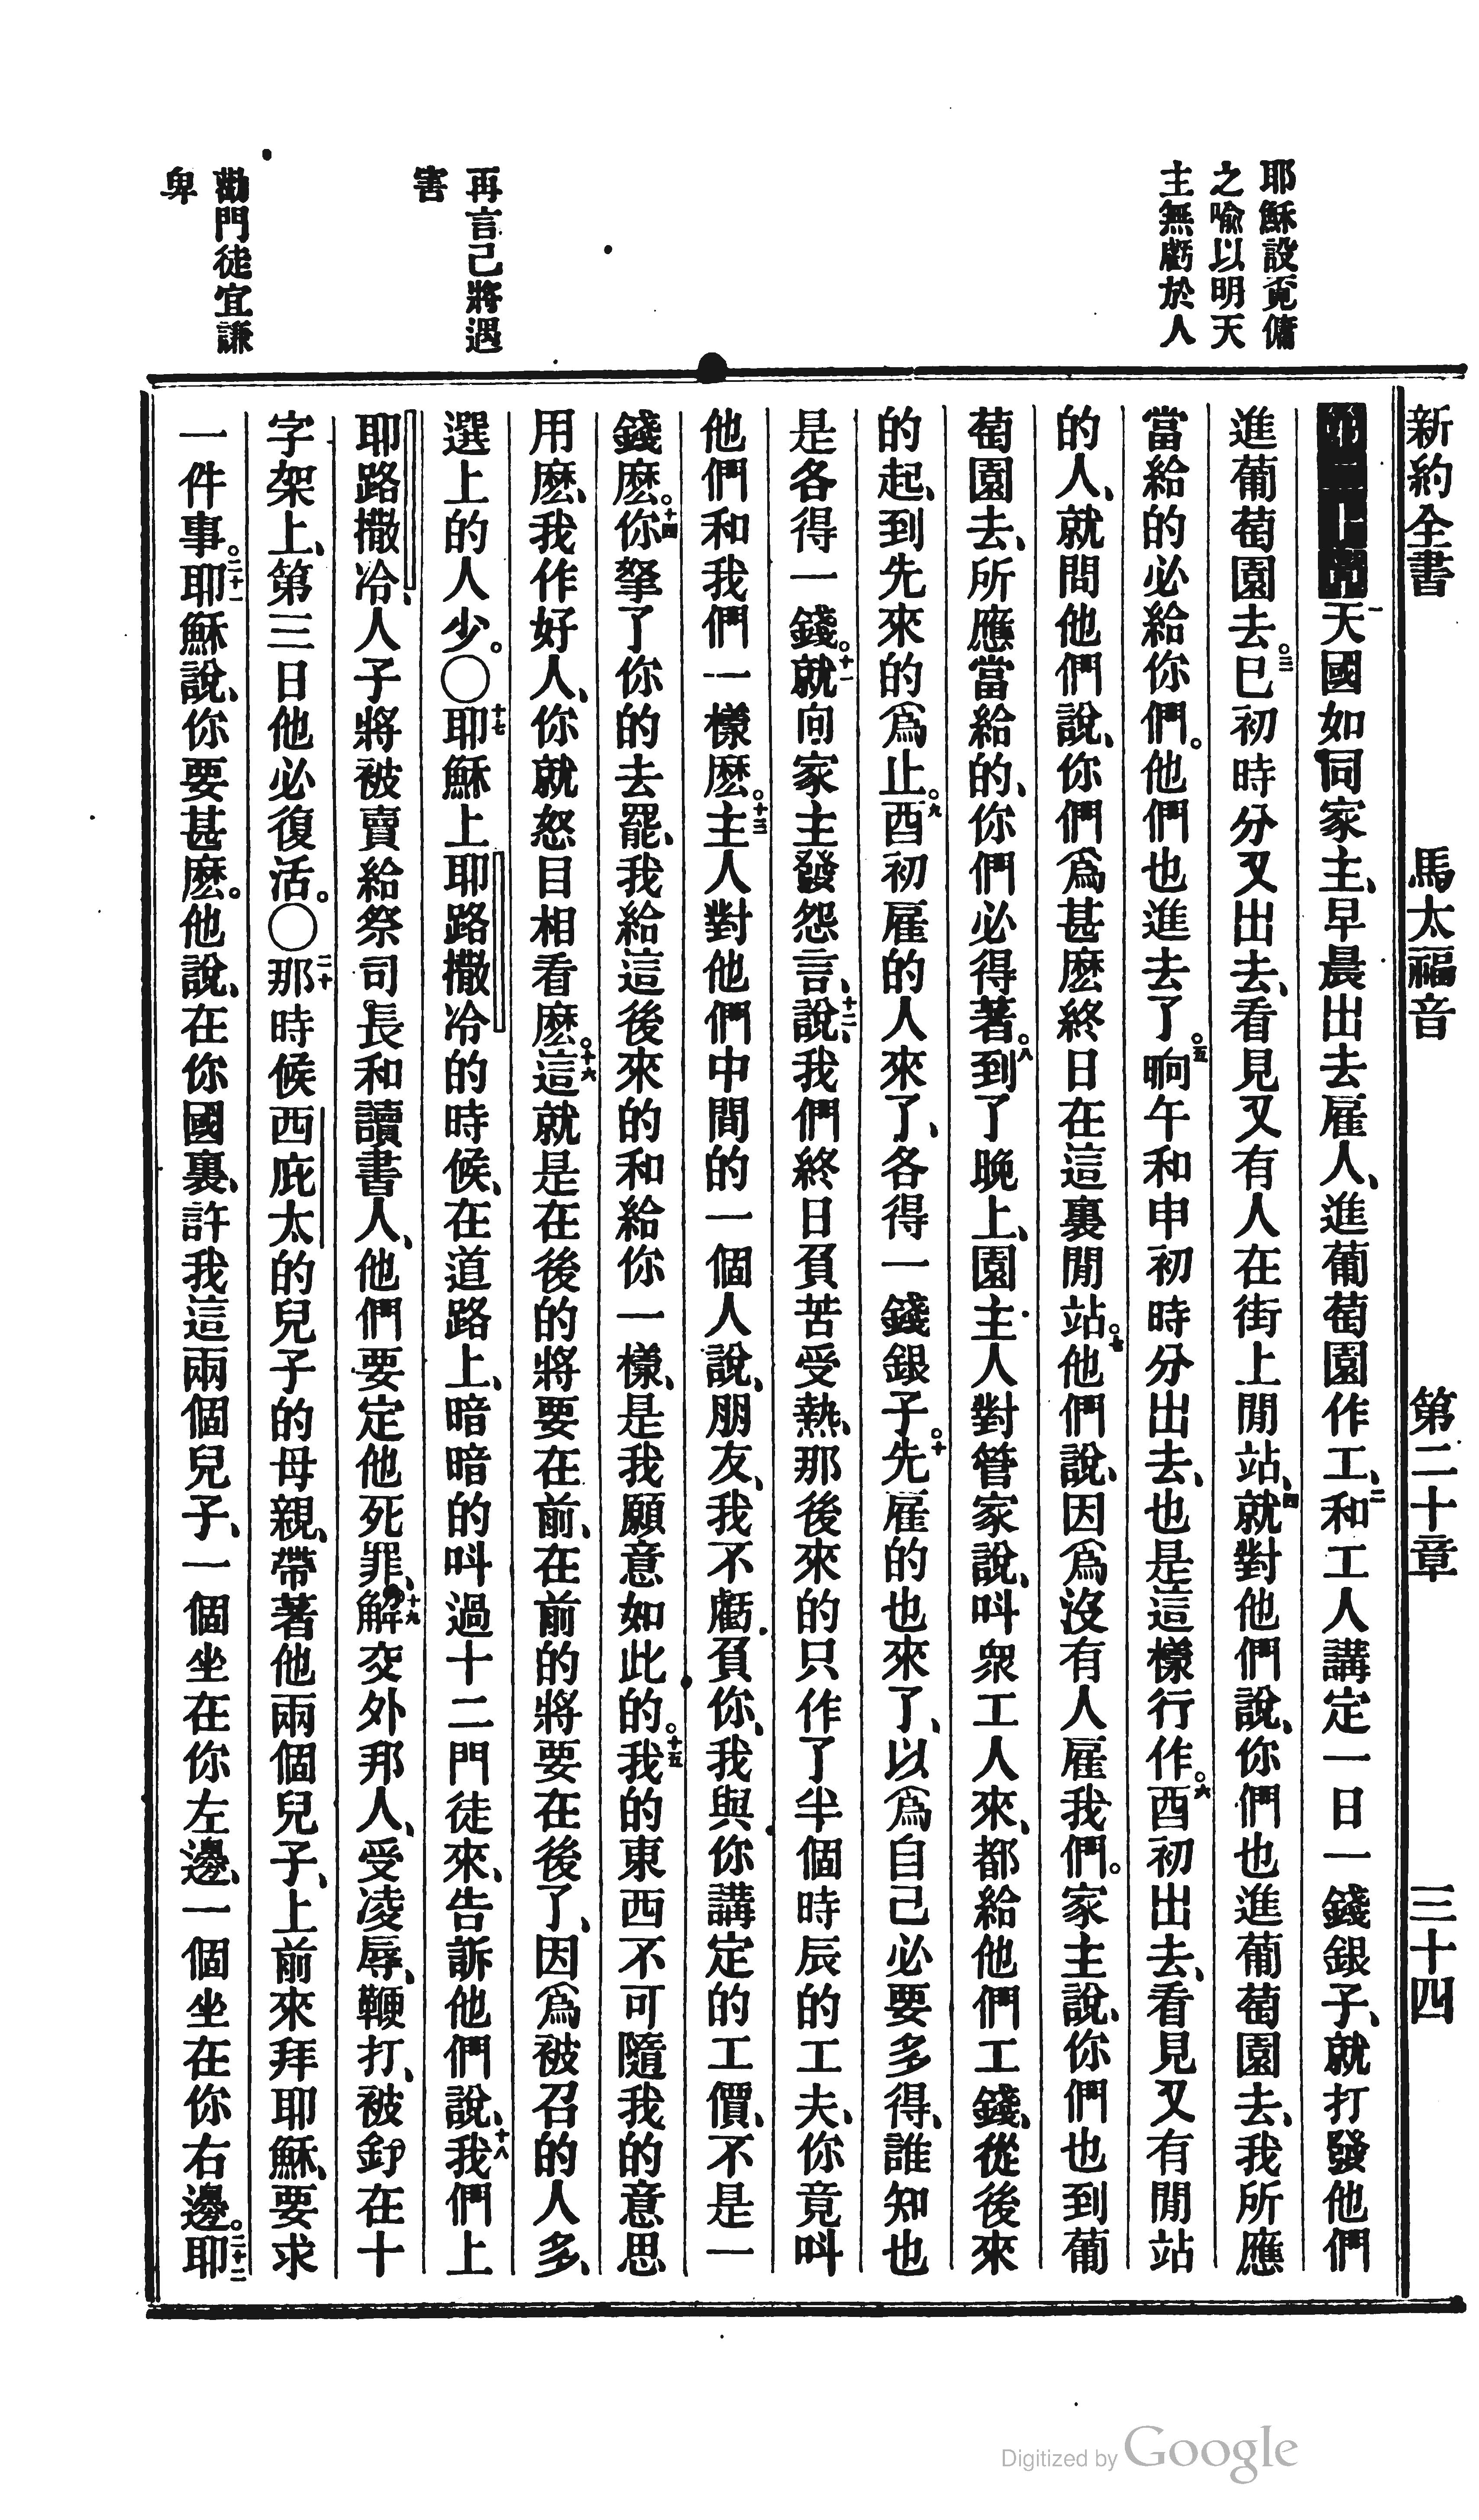 新約全書 馬太福音 第二十章 三十四
耶穌設覔傭
之喻以明天
主無虧於人
再言己將遇
害
勸門徒宜謙
卑
一天國如同家主、早晨出去雇人、進葡萄園作工、二和工人講定一日一錢銀子、就打發他們
進葡萄園去。三巳初時分又出去、看見又有人在街上閒站、四就對他們說、你們也進葡萄園去、我所應
當給的必給你們。他們也進去了。五晌午和申初時分出去、也是這樣行作。六酉初出去、看見又有閒站
的人、就問他們說、你們爲甚麽終日在這裏閒站。七他們說、因爲沒有人雇我們。家主說、你們也到葡
萄園去、所應當給的、你們必得著。八到了晚上、園主人對管家說、呌衆工人來、都給他們工錢、從後來
的起、到先來的爲止。九酉初雇的人來了、各得一錢銀子。十先雇的也來了、以爲自己必要多得、誰知也
是各得一錢。十一就向家主發怨言、十二說、我們終日負苦受熱、那後來的只作了半個時辰的工夫、你竟呌
他們和我們一樣麽。十三主人對他們中間的一個人說、朋友、我不虧負你、我與你講定的工價、不是一
錢麽。十四你拏了你的去罷、我給這後來的和給你一樣、是我願意如此的。十五我的東西不可隨我的意思
用麽、我作好人、你就怒目相看麽。十六這就是在後的將要在前、在前的將要在後了、因爲被召的人多、
選上的人少。〇十七耶穌上耶路撒冷的時候、在道路上、暗暗的呌過十二門徒來、告訴他們說、十八我們上
耶路撒冷、人子將被賣給祭司長和讀書人、他們要定他死罪、十九解交外邦人、受凌辱、鞭打、被釘在十
字架上、第三日他必復活。〇二十那時候西庇太的兒子的母親、帶著他兩個兒子、上前來拜耶穌、要求
一件事。二十一耶穌說、你要甚麽。他說、在你國裏、許我這兩個兒子、一個坐在你左邊、一個坐在你右邊。二十二耶
Digitized by Google